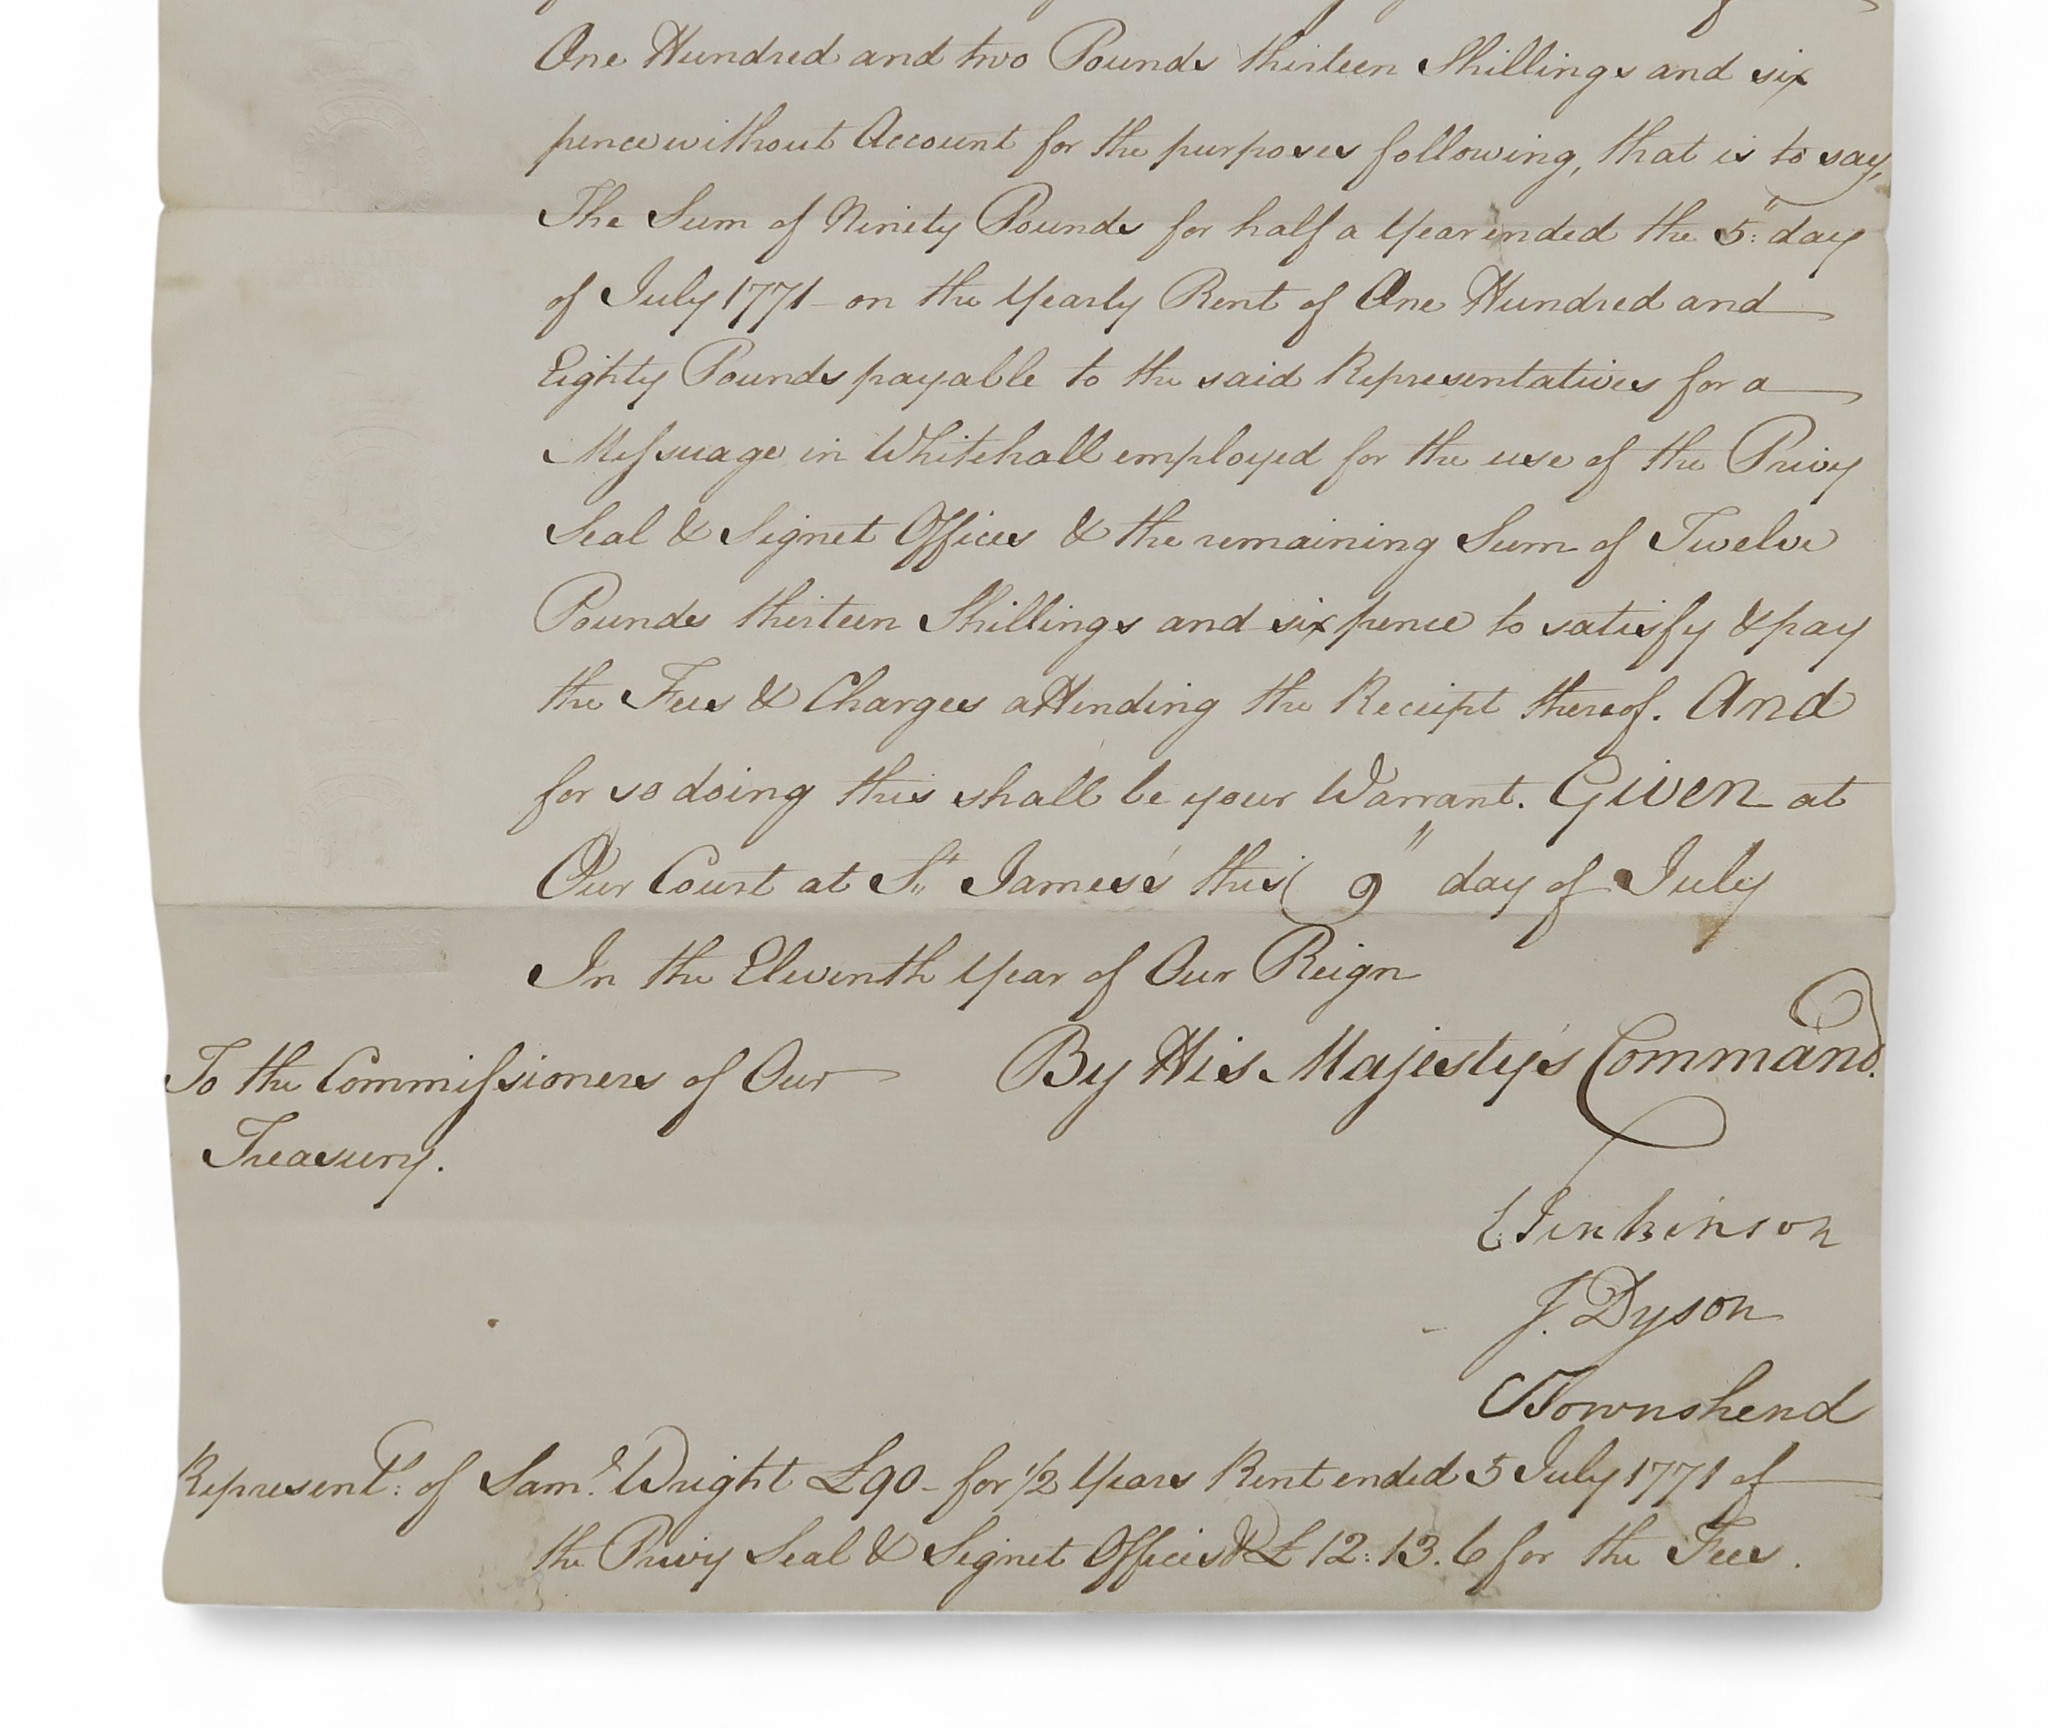 One Hundred and two Pounds thirteen Shillings and six
pence without Account for the purposes following, that is to say,
The Sum of Ninety Pounds for half a Year ended the 5th day
of July 1771 - on the Yearly Rent of One Hundred and
Eighty Pounds payable to the said Representatives for a
Messuage in Whitehall employed for the use of the Privy
Seal & Signet Offices & the remaining Sum of Twelve
Pounds thirteen Shillings and six pence to satisfy & pay
the Fees & Charges attending the Receipt thereof. And
for so doing this shall be your Warrant. Given at
Our Court at St. James's this 9th day of July
In the Eleventh Year of Our Reign
To the Commissioners of Our
Treasury.
By His Majesty's Command.
C Jenkinson
J. Dyson
CTownshend
Represent.s of Sam.l Wright £90 - for 1/2 Years Rent ended 5 July 1771 of
the Privy Seal & Signet Offices & £12:13.6 for the Fees.